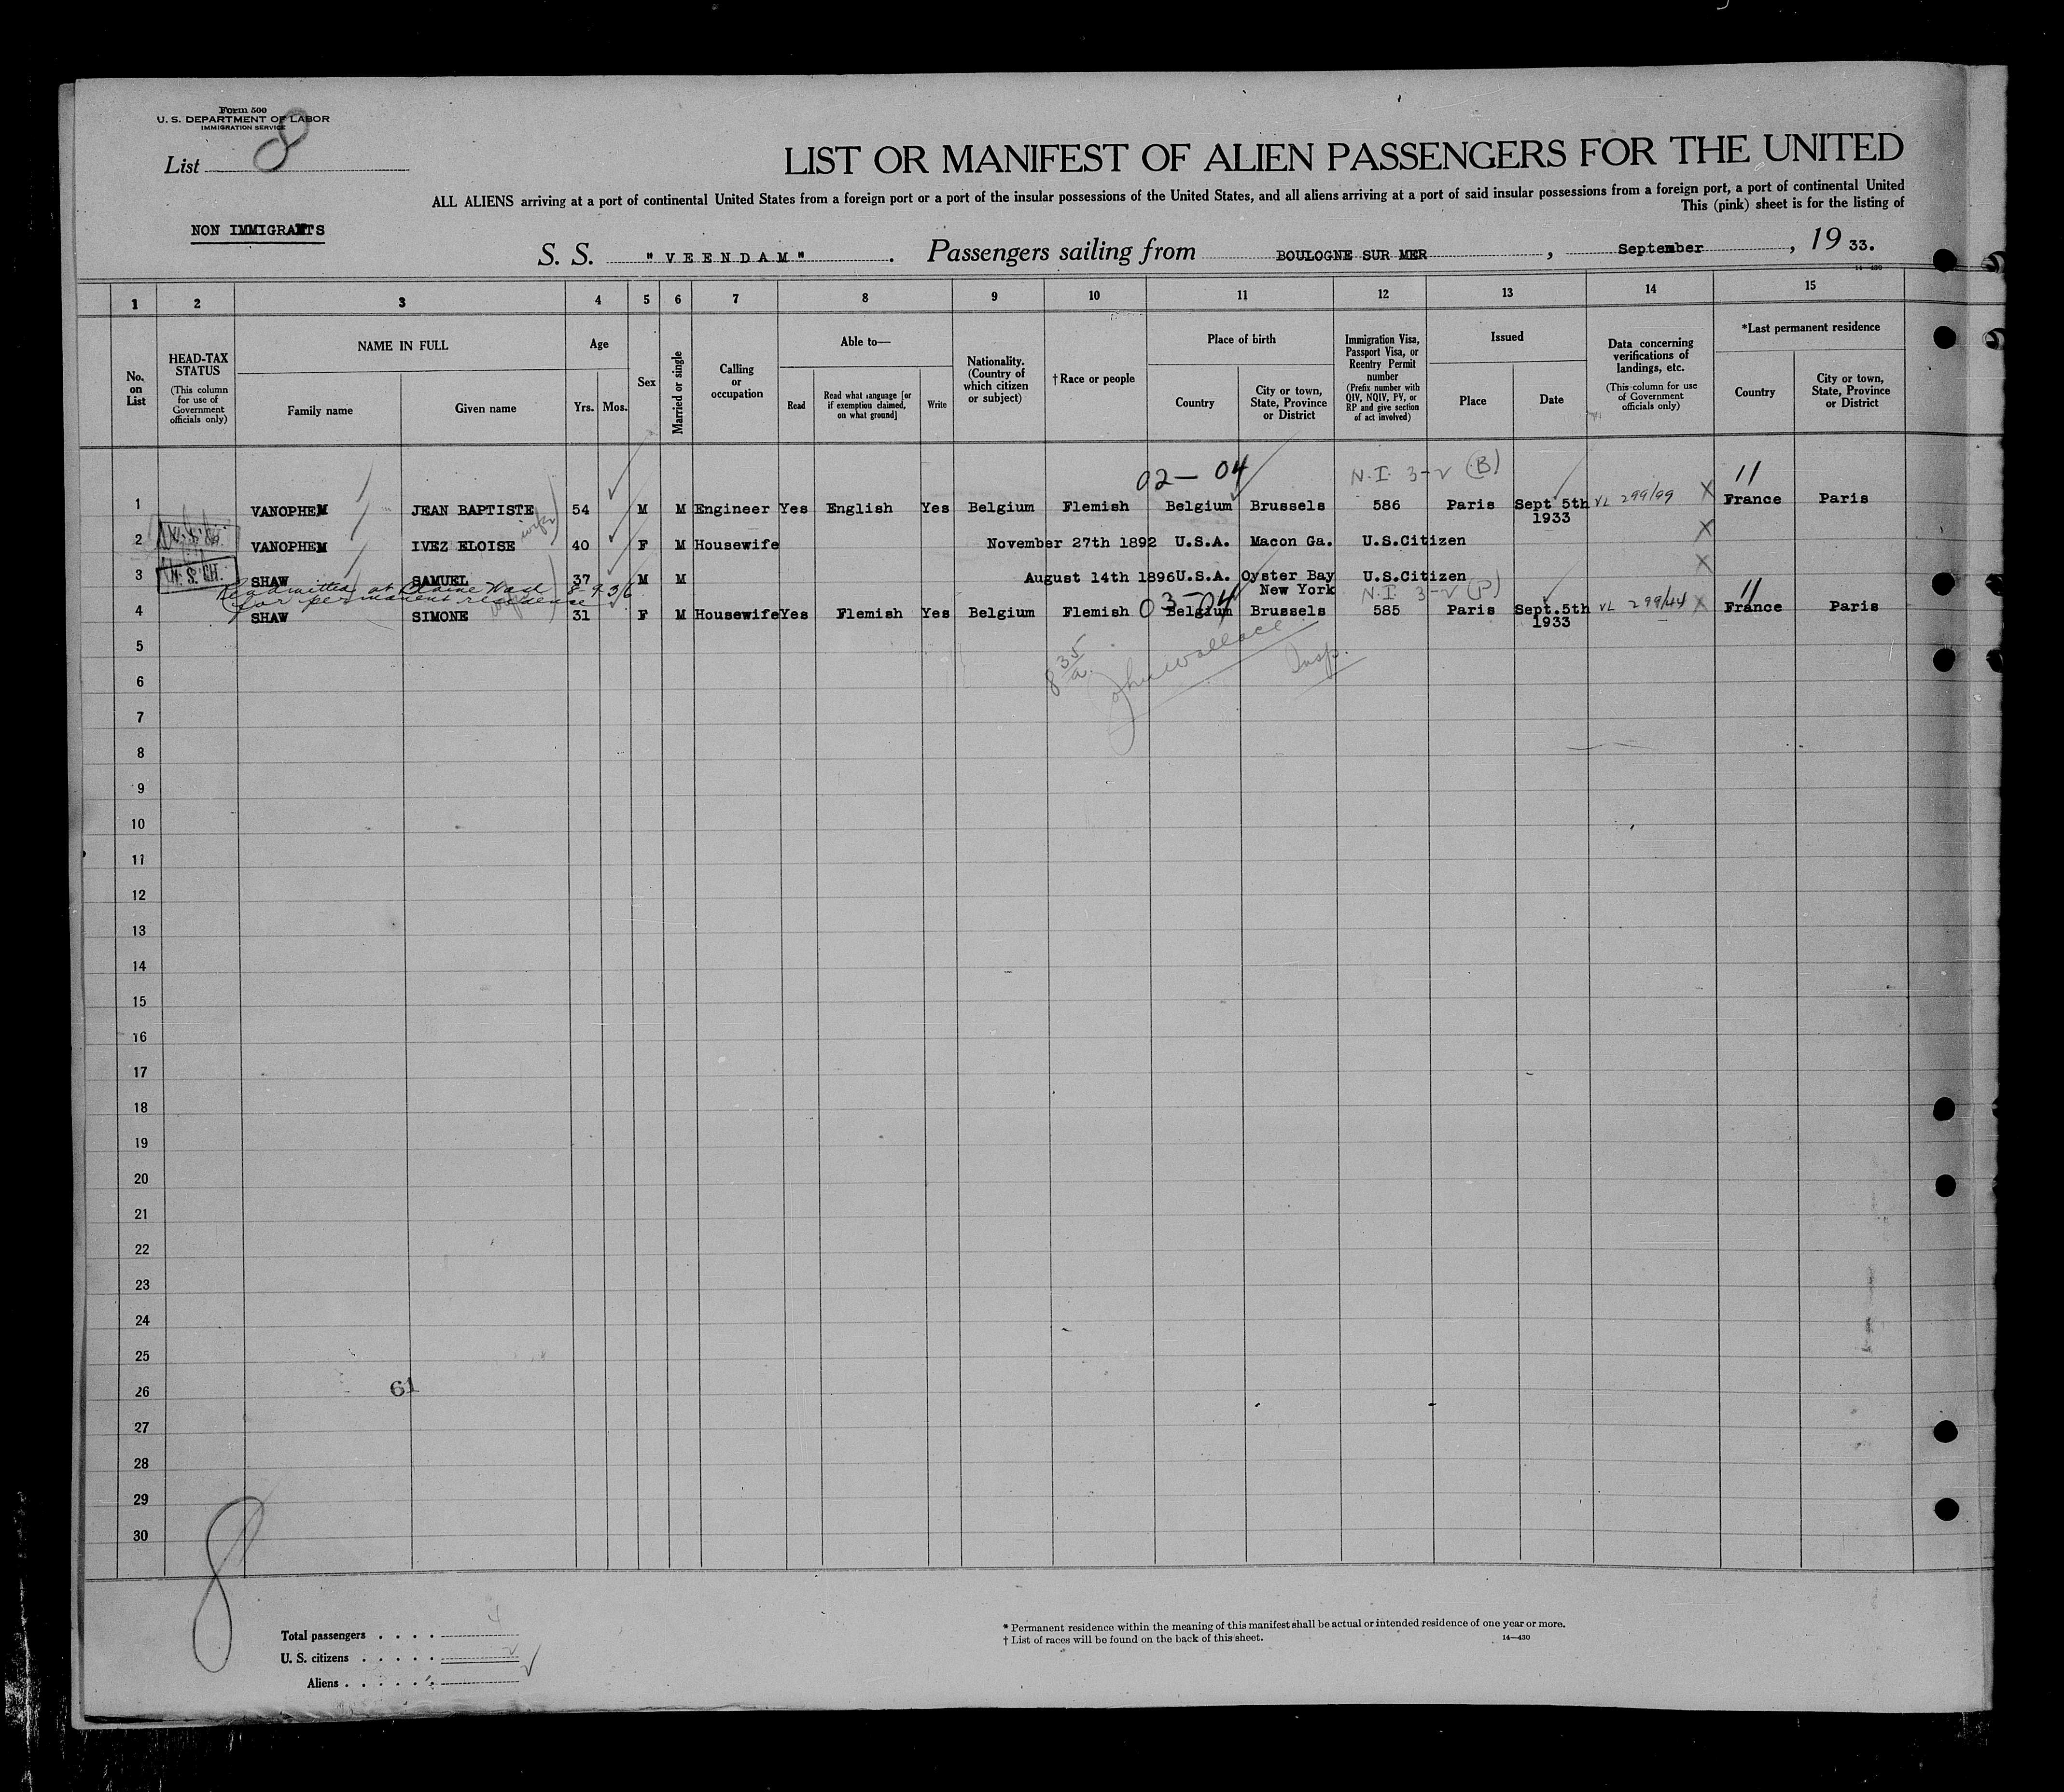 Form 500
U. S. DEPARTMENT OF LABOR
IMMIGRATION SERVICE
List 8
LIST OR MANIFEST OF ALIEN PASSENGERS FOR THE UNITED
ALL ALIENS arriving at a port of continental United States from a foreign port or a port of the insular possessions of the United States, and all aliens arriving at a port of said insular possessions from a foreign port, a port of continental United
This (pink) sheet is for the listing of
NON IMMIGRANTS
S. S. "VEENDAM". Passengers sailing from BOULOGNE SUR MER, September, 19 33.
14-430
1 2 3 4 5 6 7 8 9 10 11 12 13 14 15
No. on List
HEAD-TAX STATUS
(This column for use of Government officials only)
NAME IN FULL
Family name
Given name
Age
Yrs.
Mos.
Sex
Married or single
Calling or occupation
Able to—
Read
Read what language [or if exemption claimed, on what ground]
Write
Nationality. (Country of which citizen or subject)
†Race or people
Place of birth
Country
City or town, State, Province or District
Immigration Visa, Passport Visa, or Reentry Permit number
(Prefix number with QIV, NQIV, PV, or RP and give section of act involved)
Issued
Place
Date
Data concerning verifications of landings, etc.
(This column for use of Government officials only)
*Last permanent residence
Country
City or town, State, Province or District
02— 04 N.I. 3-2 (B) 11
1 VANOPHEM JEAN BAPTISTE 54 M M Engineer Yes English Yes Belgium Flemish Belgium Brussels 586 Paris Sept 5th 1933 VL 299/99 X France Paris
wife
2 VANOPHEM IVEZ ELOISE 40 F M Housewife November 27th 1892 U.S.A. Macon Ga. U.S.Citizen X
3 SHAW SAMUEL 37 M M August 14th 1896 U.S.A. Oyster Bay New York U.S.Citizen X
Readmitted at Blaine Wash 8-9-36
for permanent residence
wife
03-04 N.I. 3-2 (P) 11
4 SHAW SIMONE 31 F M Housewife Yes Flemish Yes Belgium Flemish Belgium Brussels 585 Paris Sept.5th 1933 VL 299/44 X France Paris
5
8 35/a. John Wallace Insp.
6
7
8
9
10
11
12
13
14
15
16
17
18
19
20
21
22
23
24
25
26
61
27
28
29
30
8
Total passengers . . . . 4
U. S. citizens . . . . . 2
Aliens . . . . . .
* Permanent residence within the meaning of this manifest shall be actual or intended residence of one year or more.
† List of races will be found on the back of this sheet.
14—430